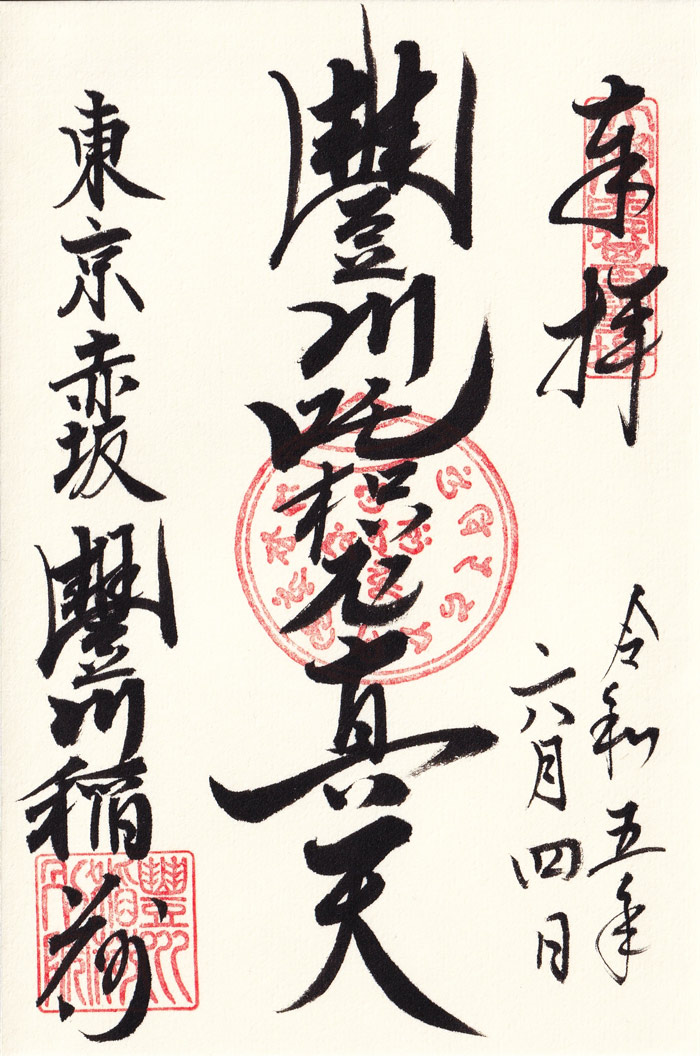 奉拝
令和五年
六月四日
豐川吒枳尼真天
東京赤坂
豐川稲荷